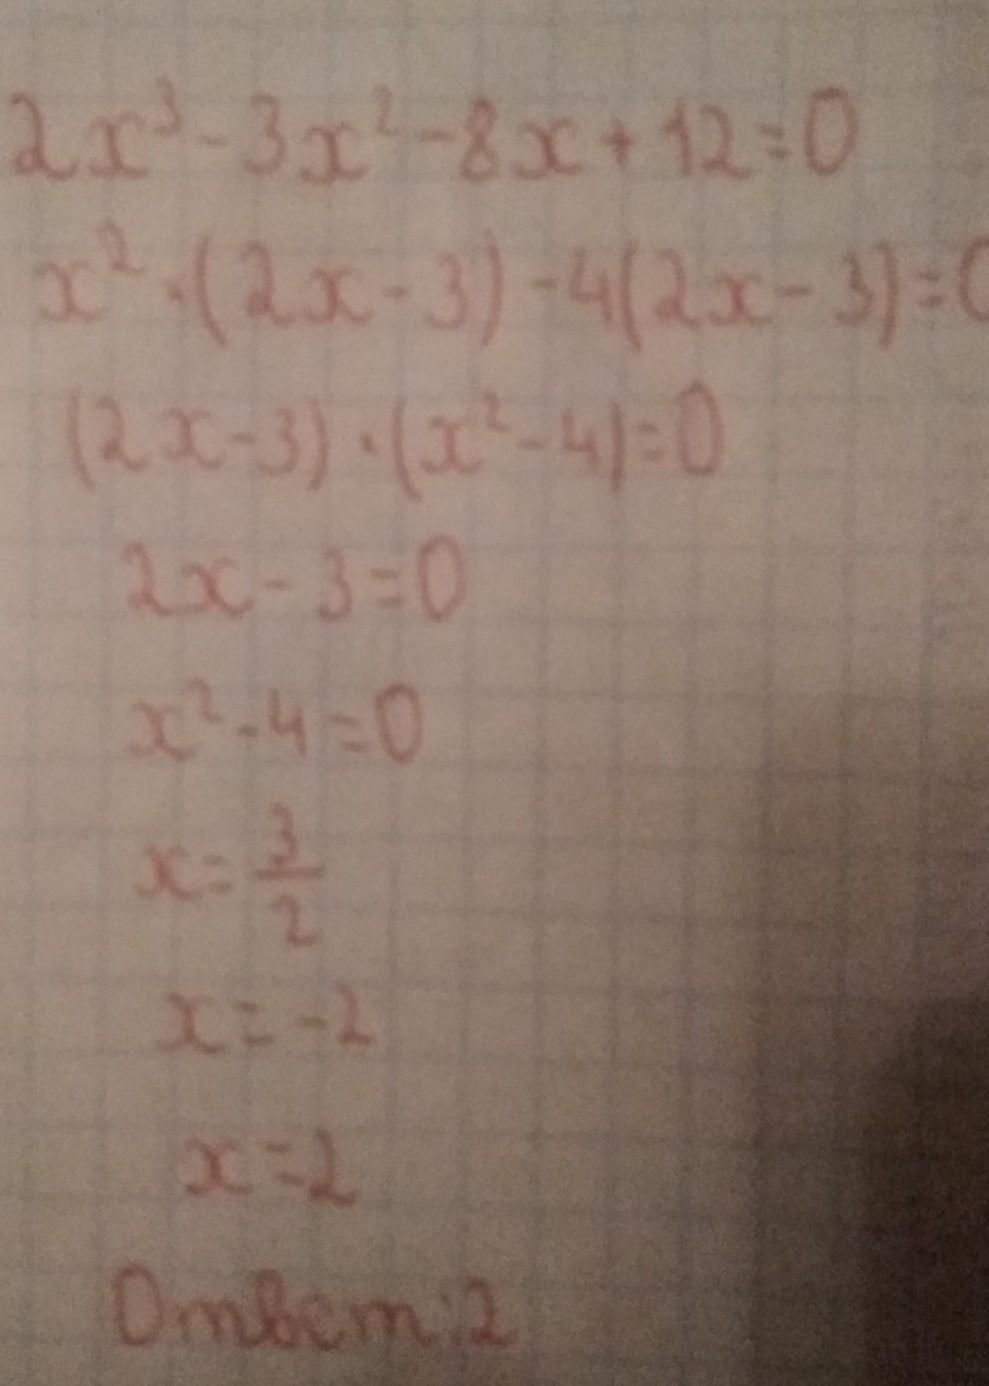 2x³-3x²-8x+12=0
x²·(2x-3)-4(2x-3)=0
(2x-3)·(x²-4)=0
2x-3=0
x²-4=0
x=3/2
x=-2
x=2
Ответ:2